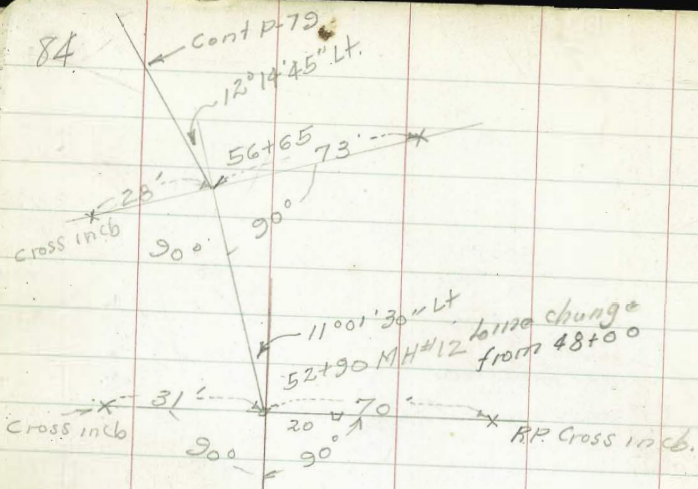 84
Cont P-79
12°14'45" Lt.
56+65
73'
28'
Cross incb
90°
90°
11°01'30" Lt
52+90 MH#12 Line change
from 48+00
31'
70'
20
Cross incb
R.P. Cross incb.
90°
90°